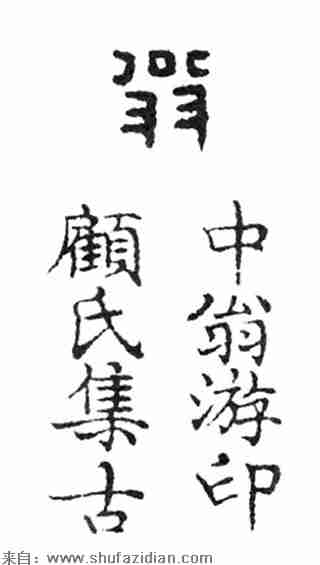 翁
中翁游印
顧氏集古
来自：www.shufazidian.com